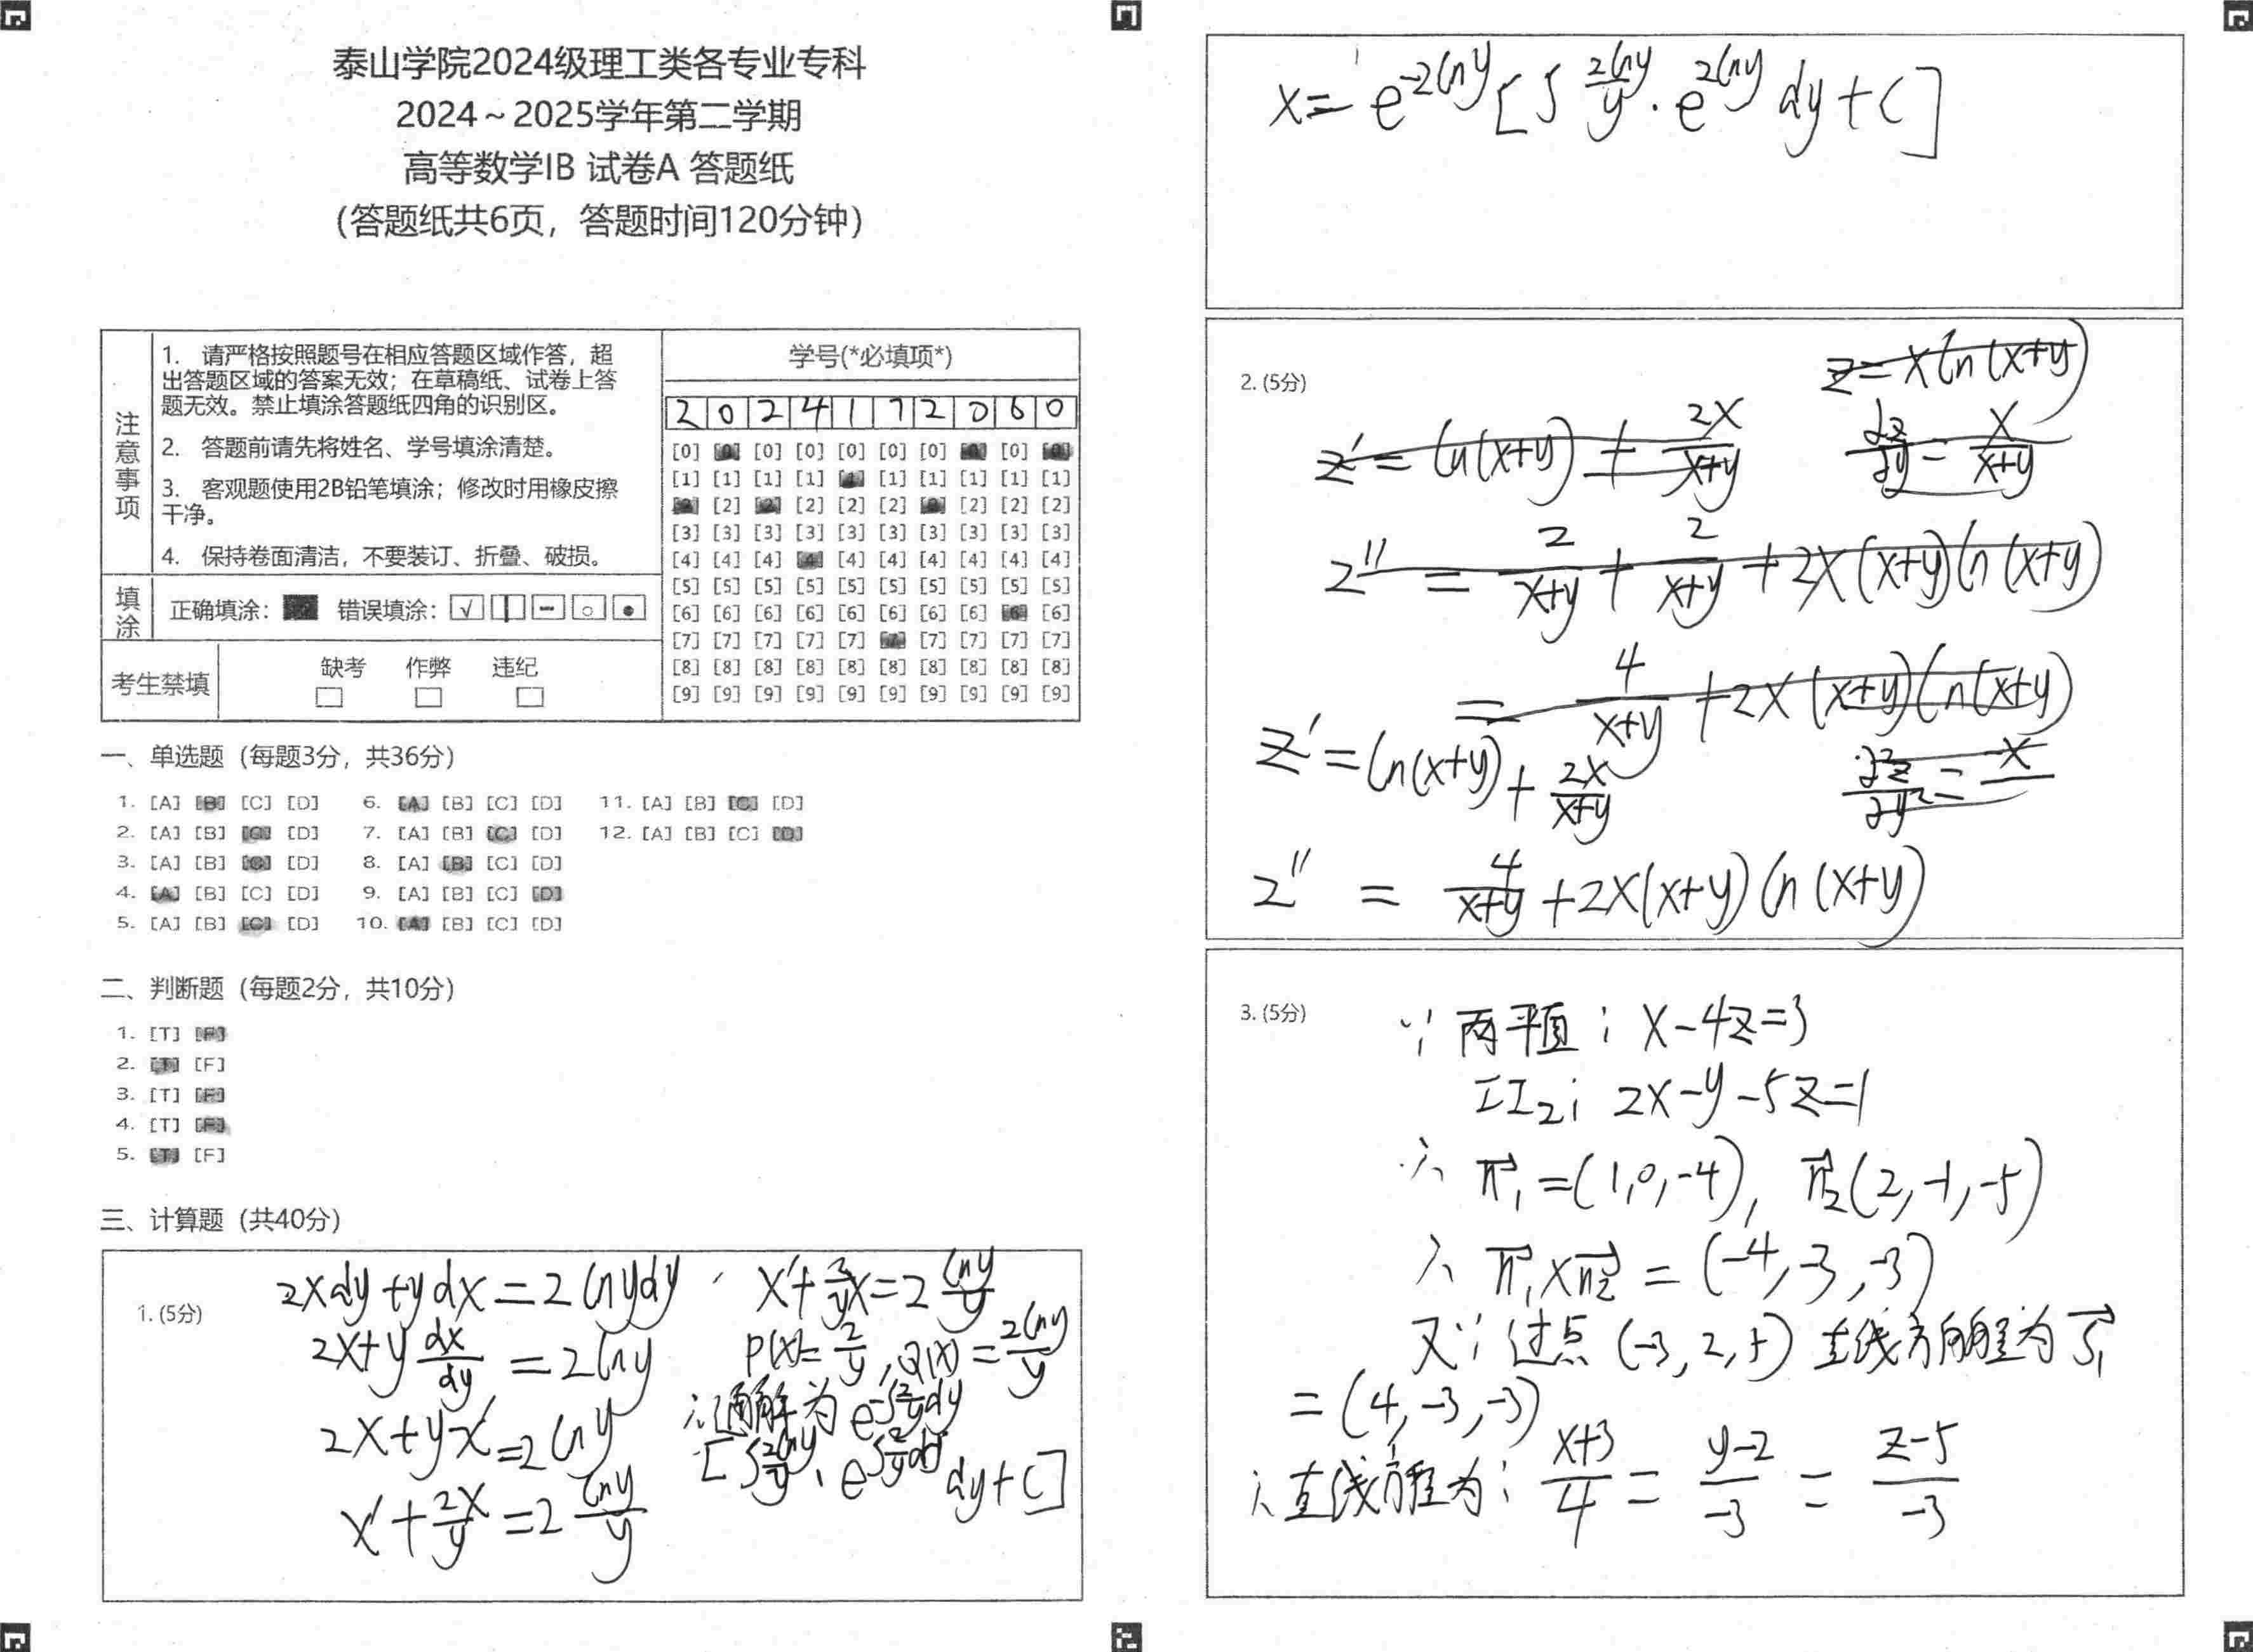 泰山学院2024级理工类各专业专科
2024～2025学年第二学期
高等数学IB 试卷A 答题纸
（答题纸共6页，答题时间120分钟）
注意事项
1. 请严格按照题号在相应答题区域作答，超
出答题区域的答案无效；在草稿纸、试卷上答
题无效。禁止填涂答题纸四角的识别区。
2. 答题前请先将姓名、学号填涂清楚。
3. 客观题使用2B铅笔填涂；修改时用橡皮擦
干净。
4. 保持卷面清洁，不要装订、折叠、破损。
填涂 正确填涂： 错误填涂：
考生禁填 缺考 作弊 违纪
学号(*必填项*)
2 0 2 4 1 7 2 0 6 0
[0] [0] [0] [0] [0] [0] [0] [0] [0] [0]
[1] [1] [1] [1] [1] [1] [1] [1] [1] [1]
[2] [2] [2] [2] [2] [2] [2] [2] [2] [2]
[3] [3] [3] [3] [3] [3] [3] [3] [3] [3]
[4] [4] [4] [4] [4] [4] [4] [4] [4] [4]
[5] [5] [5] [5] [5] [5] [5] [5] [5] [5]
[6] [6] [6] [6] [6] [6] [6] [6] [6] [6]
[7] [7] [7] [7] [7] [7] [7] [7] [7] [7]
[8] [8] [8] [8] [8] [8] [8] [8] [8] [8]
[9] [9] [9] [9] [9] [9] [9] [9] [9] [9]
一、单选题（每题3分，共36分）
1. [A] [B] [C] [D] 6. [A] [B] [C] [D] 11. [A] [B] [C] [D]
2. [A] [B] [C] [D] 7. [A] [B] [C] [D] 12. [A] [B] [C] [D]
3. [A] [B] [C] [D] 8. [A] [B] [C] [D]
4. [A] [B] [C] [D] 9. [A] [B] [C] [D]
5. [A] [B] [C] [D] 10. [A] [B] [C] [D]
二、判断题（每题2分，共10分）
1. [T] [F]
2. [T] [F]
3. [T] [F]
4. [T] [F]
5. [T] [F]
三、计算题（共40分）
1. (5分)
2xdy+ydx=2lnydy
2x+y dx/dy =2lny
2x+yx'=2lny
x'+2x/y=2 lny/y
x'+2/y x=2 lny/y
P(x)=2/y, Q(x)=2lny/y
∴通解为 e^{-∫2/y dy}
[∫2lny/y · e^{∫2/y dy} dy+C]
x=e^{-2lny}[∫2lny/y · e^{2lny} dy+C]
2. (5分)
z=xln(x+y)
z'=ln(x+y)+2x/(x+y) ∂z/∂y=x/(x+y)
z''=2/(x+y)+2/(x+y)+2x(x+y)ln(x+y)
=4/(x+y)+2x(x+y)ln(x+y)
z'=ln(x+y)+2x/(x+y) ∂²z/∂y²=x
z''=4/(x+y)+2x(x+y)ln(x+y)
3. (5分)
∵两平面：x-4z=3
II₂：2x-y-5z=1
∴ n⃗₁=(1,0,-4), n⃗₂(2,-1,-5)
∴ n⃗₁×n⃗₂=(-4,-3,-3)
又∵过点(-3,2,5)直线方程为 s⃗₁
=(4,-3,-3)
∴直线方程为：(x+3)/4=(y-2)/-3=(z-5)/-3